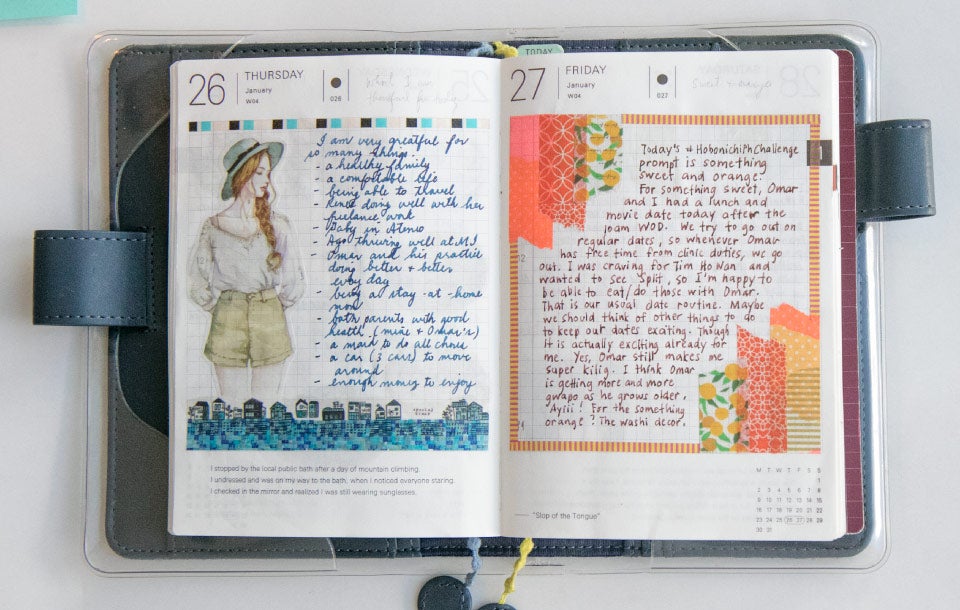 26
THURSDAY
January
W04
026
What I am
thankful for today
I am very greatful for
so many things.
- a healthy family
- a comfortable life
- being able to travel
doing well with her
freelance work
- Baby in Ateneo
- Ago thriving well at MI
- Omar and his practice
doing better & better
every day
- being a stay-at-home
mom
- both parents with good
health (mine & Omar's)
- a maid to do all chores
- a car (3 cars) to move
around
- enough money to enjoy
special
times
I stopped by the local public bath after a day of mountain climbing.
I undressed and was on my way to the bath, when I noticed everyone staring.
I checked in the mirror and realized I was still wearing sunglasses.
TODAY
27
FRIDAY
January
W04
027
Sweet
1
Today's #HobonichiPhChallenge
prompt is something
sweet and orange.
For something sweet, Omar
and I had a lunch and
movie date today after the
10am WOD. We try to go out on
regular dates, so whenever Omar
has free time from clinic duties, we go
out. I was craving for Tim Ho Wan and
wanted to see Split, so I'm happy to
be able to eat/do those with Omar.
That is our usual date routine. Maybe
we should think of other things to do
to keep our dates exciting. Though
it is actually exciting already for
me. Yes, Omar still makes me
super kilig. I think Omar
is getting more and more
gwapo as he grows older.
Ayiii! For the something
orange? The washi decor.
12
12
M T W T F S S
1
2 3 4 5 6 7 8
9 10 11 12 13 14 15
16 17 18 19 20 21 22
23 24 25 26 27 28 29
30 31
— "Slop of the Tongue"